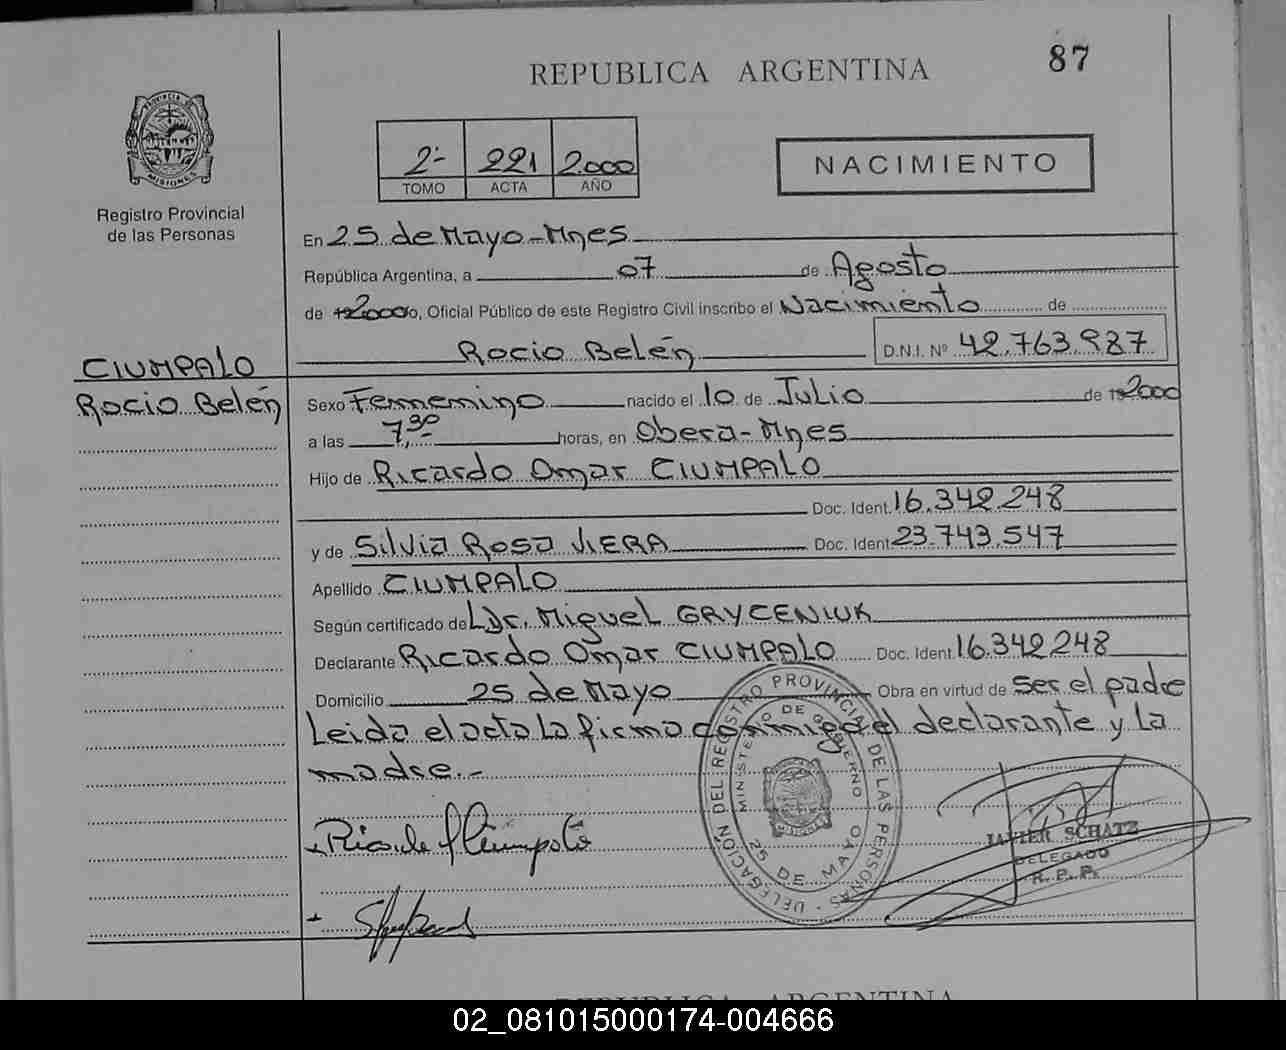 87
REPUBLICA ARGENTINA
PROVINCIA DE
MISIONES
2- 221 2.000
TOMO ACTA AÑO
NACIMIENTO
Registro Provincial
de las Personas
En 25 de Mayo-Mnes
República Argentina, a 07 de Agosto
de 2000, Oficial Público de este Registro Civil inscribo el Nacimiento de
Rocio Belén D.N.I. Nº 42.763.987
CIUMPALO
Rocio Belén
Sexo Femenino nacido el 10 de Julio de 2000
a las 7,30 horas, en Obera-Mnes
Hijo de Ricardo Omar CIUMPALO
Doc. Ident. 16.342.248
y de Silvia Rosa VIERA Doc. Ident 23.743.547
Apellido CIUMPALO
Según certificado de Dr. Miguel GRYCENIUK
Declarante Ricardo Omar CIUMPALO Doc. Ident. 16.342248
Domicilio 25 de Mayo Obra en virtud de Ser el padre
Leida el acta la firma conmigo el declarante y La
madre.-
DELEGACIÓN DEL REGISTRO PROVINCIAL DE LAS PERSONAS
MINISTERIO DE GOBIERNO
25 DE MAYO
MISIONES
JAVIER SCHATZ
DELEGADO
R. P. P.
REPUBLICA ARGENTINA
02_081015000174-004666